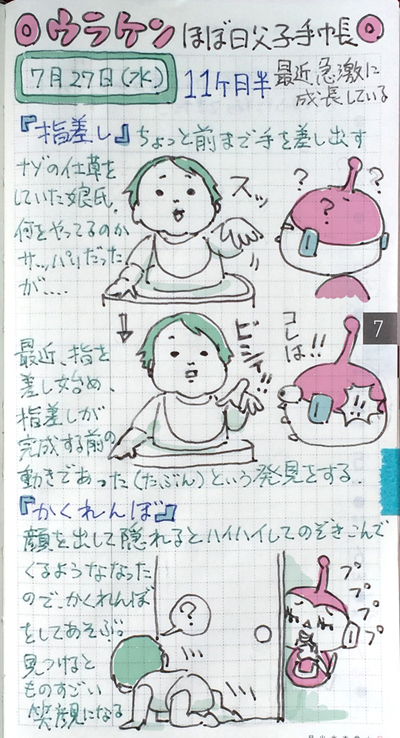 ウラケン ほぼ日父子手帳
7月27日(水)
11ケ月半
最近、急激に
成長している
『指差し』ちょっと前まで手を差し出す
ナゾの仕草を
していた娘氏。
何をやってるのか
サッパリだった
が…
スッ
? ? ?
7
最近、指を
差し始め、
指差しが
完成する前の
動きであった(たぶん)という発見をする.
ビシィ!!
コレは!!
!!
『かくれんぼ』
顔を出して隠れるとハイハイしてのぞきこんで
くるようななった
ので、かくれんぼ
をしてあそぶ。
見つけると
ものすごい
笑顔になる
?
プププププ